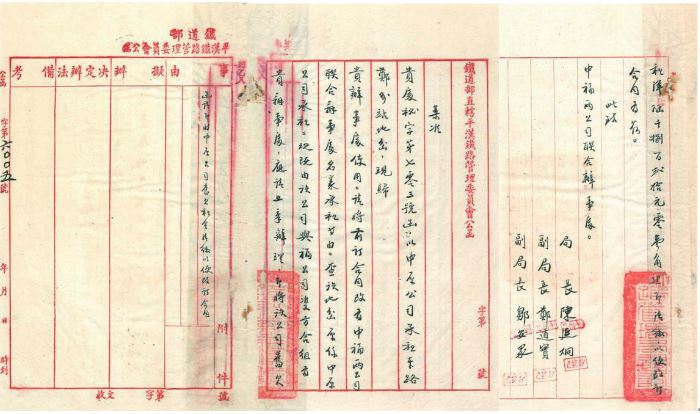 鐵道部
平漢鐵路管理委員會公函
事由
擬辦
決定辦法
備考
中原公司舊欠租金清繳以便改訂合同
附件
收文 字第 號
字第六〇〇五號
年 月 日 時到
鐵道部直轄平漢鐵路管理委員會公函 字第 號
案准
貴處秘字第七零三號函：以中原公司承租東路
鄭州站地畝，現歸
貴辦事處使用。請將前訂合同改為中福兩公司
聯合辦事處名義承租等由。查該地畝原係中原
公司承租。現既由該公司與福公司雙方合組為
貴辦事處，應請照章辦理，並將該公司舊欠
租洋陸千捌百玖拾元零叁角 清繳以便改訂
合同為荷。
此致
中福兩公司聯合辦事處。
局長陳延炯
副局長鄭道實
副局長鄒安眾